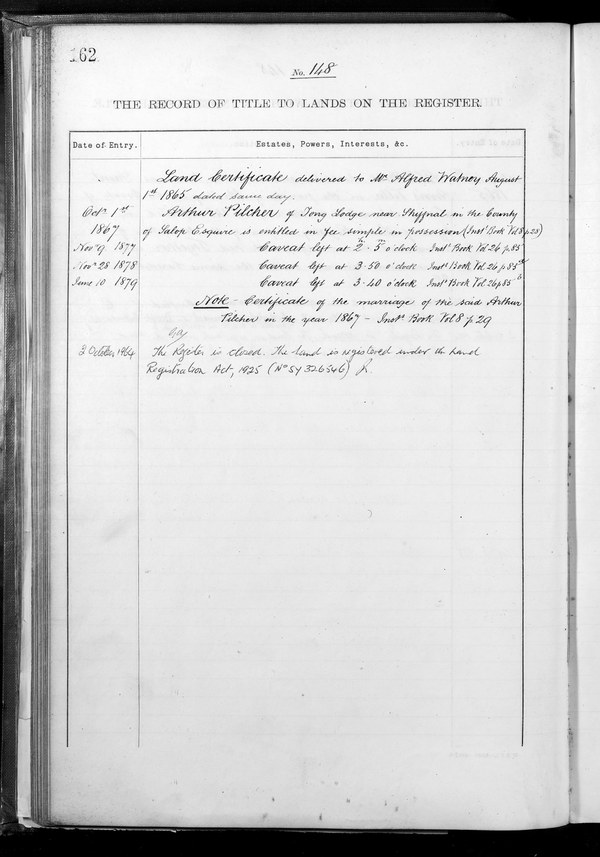 162
No. 148
THE RECORD OF TITLE TO LANDS ON THE REGISTER.
Date of Entry.
Estates, Powers, Interests, &c.
Land Certificate delivered to Mr. Alfred Watney August
1st 1865 dated same day.
Octr. 1st 1867 Arthur Pilcher of Tong Lodge near Shiffnal in the County
of Salop Esquire is entitled in fee simple in possession (Instt. Book Vol 8 p 23)
Novr 9 1877 Caveat left at 2h 5m o'clock Instt. Book Vol 26 p 85
Novr 28 1878 Caveat left at 3.50 o'clock Instt. Book Vol 26 p 85
June 10 1879 Caveat left at 3.40 o'clock Instt. Book Vol 26 p 85
Note - Certificate of the marriage of the said Arthur
Pilcher in the year 1867 - Instt. Book Vol 8 p 29
3 October 1964 The Register is closed. The land is registered under the Land
Registration Act, 1925 (No SY 326546)